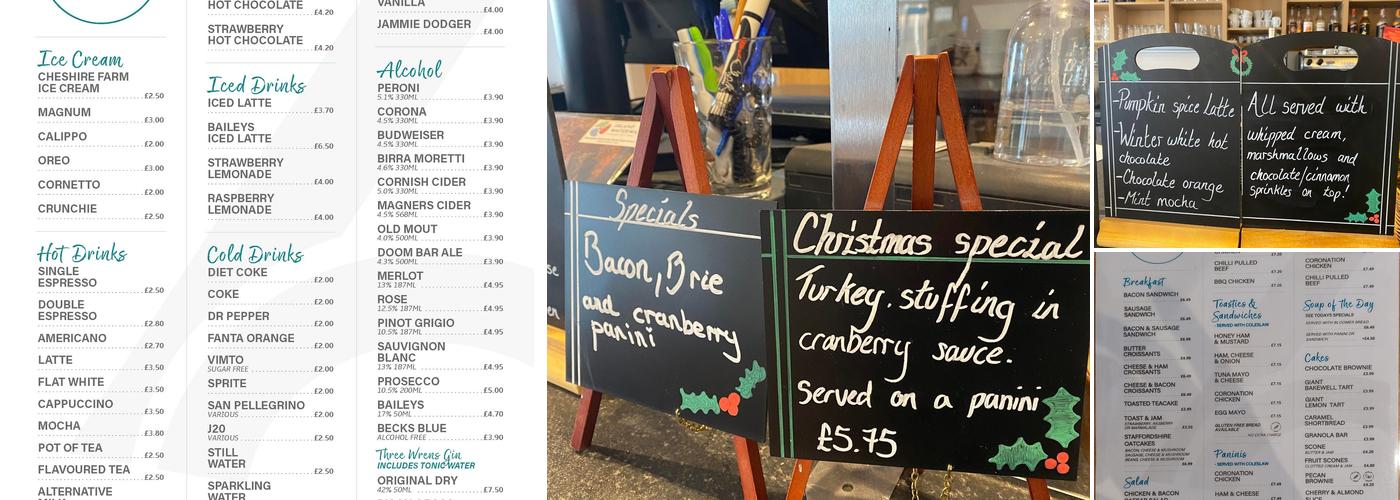 HOT CHOCOLATE
£4.20
STRAWBERRY
HOT CHOCOLATE
£4.20
VANILLA
£4.00
JAMMIE DODGER
£4.00
Ice Cream
CHESHIRE FARM
ICE CREAM
£2.50
MAGNUM
£3.00
CALIPPO
£2.00
OREO
£3.00
CORNETTO
£2.00
CRUNCHIE
£2.50
Hot Drinks
SINGLE
ESPRESSO
£2.50
DOUBLE
ESPRESSO
£2.80
AMERICANO
£2.70
LATTE
£3.50
FLAT WHITE
£3.50
CAPPUCCINO
£3.50
MOCHA
£3.80
POT OF TEA
£2.50
FLAVOURED TEA
£2.50
ALTERNATIVE
Iced Drinks
ICED LATTE
£3.70
BAILEYS
ICED LATTE
£6.50
STRAWBERRY
LEMONADE
£4.00
RASPBERRY
LEMONADE
£4.00
Cold Drinks
DIET COKE
£2.00
COKE
£2.00
DR PEPPER
£2.00
FANTA ORANGE
£2.00
VIMTO
SUGAR FREE £2.00
SPRITE
£2.00
SAN PELLEGRINO
VARIOUS £2.00
J20
VARIOUS £2.50
STILL
WATER
£2.50
SPARKLING
WATER
Alcohol
PERONI
5.1% 330ML £3.90
CORONA
4.5% 330ML £3.90
BUDWEISER
4.5% 330ML £3.90
BIRRA MORETTI
4.6% 330ML £3.90
CORNISH CIDER
5.0% 330ML £3.90
MAGNERS CIDER
4.5% 568ML £3.90
OLD MOUT
4.0% 500ML £3.90
DOOM BAR ALE
4.3% 500ML £3.90
MERLOT
13% 187ML £4.95
ROSE
12.5% 187ML £4.95
PINOT GRIGIO
10.5% 187ML £4.95
SAUVIGNON
BLANC
13% 187ML £4.95
PROSECCO
10.5% 200ML £5.00
BAILEYS
17% 50ML £4.70
BECKS BLUE
ALCOHOL FREE £3.90
Three Wrens Gin
INCLUDES TONIC WATER
ORIGINAL DRY
42% 50ML £7.50
Specials
Bacon, Brie
and cranberry
panini
Christmas special
Turkey. stuffing in
cranberry sauce.
Served on a panini
£5.75
-Pumpkin spice latte
-Winter white hot
chocolate
-Chocolate orange
-Mint mocha
All served with
whipped cream,
marshmallows and
chocolate/cinnamon
sprinkles on top!
Breakfast
BACON SANDWICH
SAUSAGE
SANDWICH
BACON & SAUSAGE
SANDWICH
BUTTER
CROISSANTS
CHEESE & HAM
CROISSANTS
CHEESE & BACON
CROISSANTS
TOASTED TEACAKE
TOAST & JAM
STAFFORDSHIRE
OATCAKES
Salad
CHICKEN & BACON
CHILLI PULLED
BEEF
£7.25
BBQ CHICKEN
£7.25
Toasties &
Sandwiches
- SERVED WITH COLESLAW
HONEY HAM
& MUSTARD
£7.15
HAM, CHEESE
& ONION
£7.15
TUNA MAYO
& CHEESE
£7.15
CORONATION
CHICKEN
£7.15
EGG MAYO
£7.15
GLUTEN FREE BREAD
AVAILABLE
NO EXTRA CHARGE
Paninis
- SERVED WITH COLESLAW
CORONATION
CHICKEN
HAM, CHEESE
CORONATION
CHICKEN
£7.49
CHILLI PULLED
BEEF
£7.49
Soup of the Day
SEE TODAYS SPECIALS
SERVED WITH BLOOMER BREAD
SERVED WITH PANINI OR
SANDWICH
Cakes
CHOCOLATE BROWNIE
£3.99
GIANT
BAKEWELL TART
£3.99
GIANT
LEMON TART
£3.99
CARAMEL
SHORTBREAD
£3.99
GRANOLA BAR
£3.99
SCONE
BUTTER & JAM
FRUIT SCONES
CLOTTED CREAM & JAM
PECAN
BROWNIE
CHERRY & ALMOND